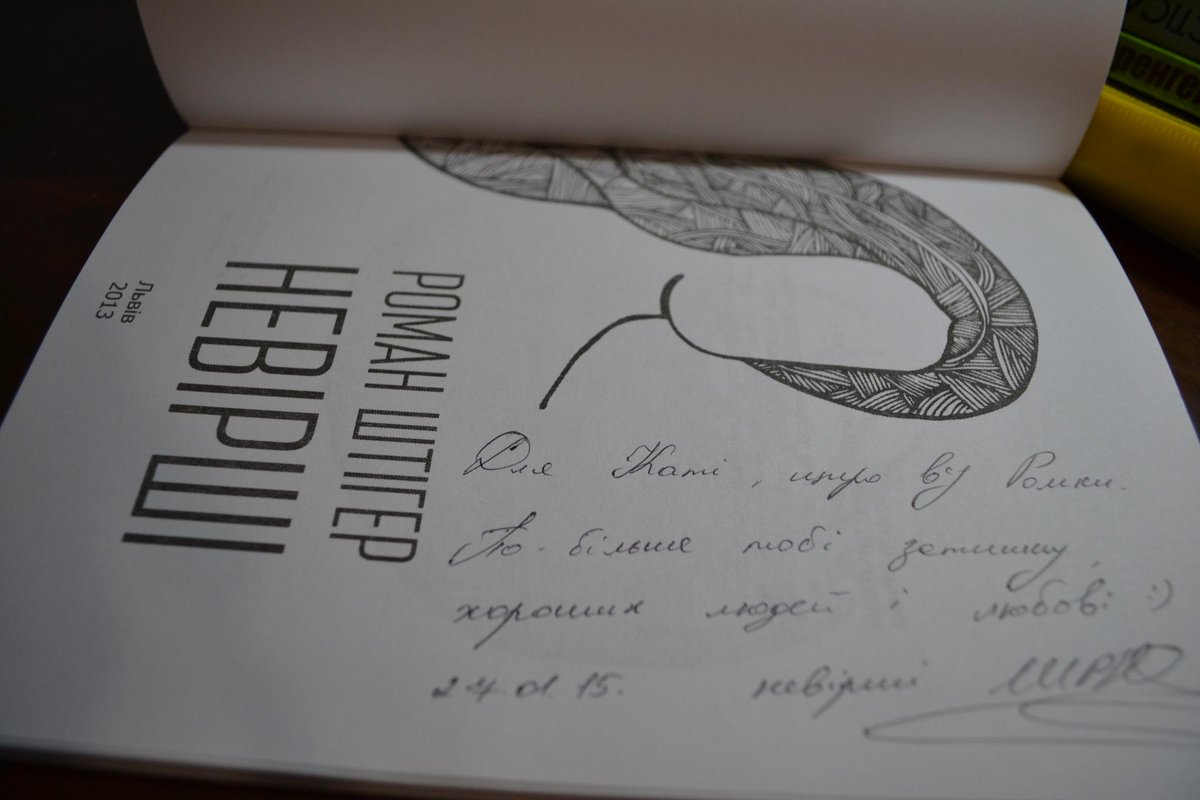 РОМАН ШТІГЕР
НЕВІРШІ
Львів
2013
Для Каті, щиро від Ромки.
По-більше тобі затишку,
хороших людей і любові :)
24.01.15. невірші